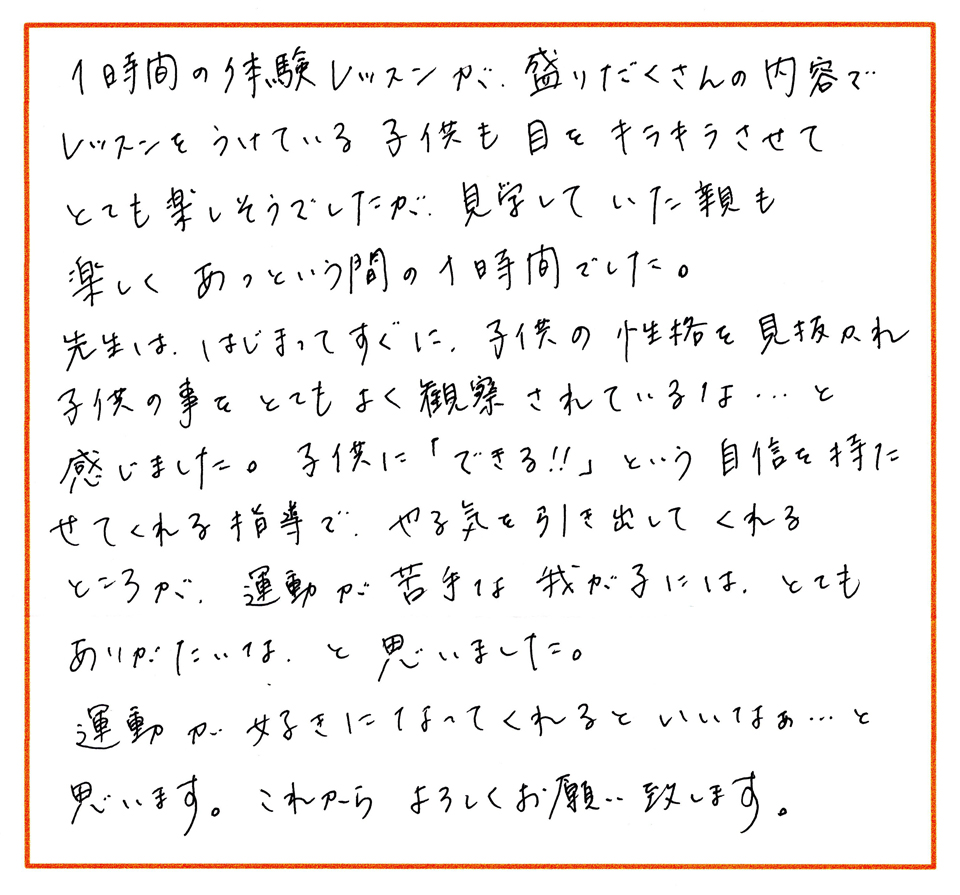 1日時間の体験レッスンが、盛りだくさんの内容で
レッスンをうけている子供も目をキラキラさせて
とても楽しそうでしたが、見学していた親も
楽しくあっという間の1日時間でした。
先生は、はじまってすぐに、子供の性格を見抜かれ
子供の事をとてもよく観察されているな…と
感じました。子供に「できる!!」という自信を持た
せてくれる指導で、やる気を引き出してくれる
ところが、運動が苦手な我が子には、とても
ありがたいな、と思いました。
運動が好きになってくれるといいなぁ…と
思います。これからよろしくお願い致します。